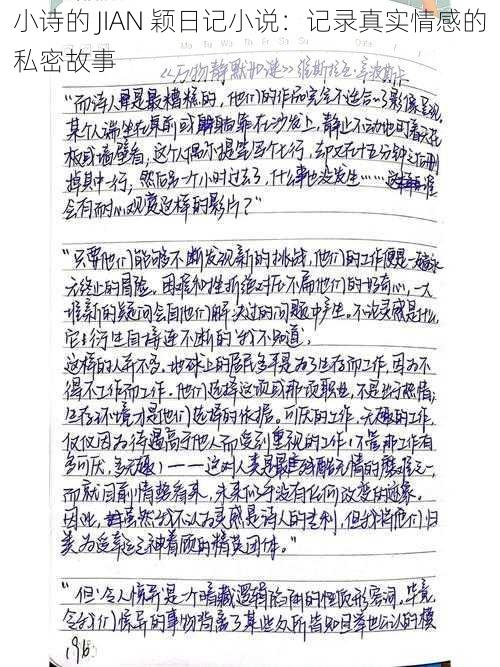 小诗的 JIAN 颖日记小说：记录真实情感的
私密故事
《万物静默如谜》维斯拉瓦·辛波斯卡
“而诗人是最糟糕的，他们的作品完全不适合以影像呈现。
某个人端坐在桌前或躺靠在沙发上，静止不动地盯着天花
板或墙壁看，这个人偶尔提笔写个七行，却又在十五分钟之后删
掉其中一行，然后另一个小时过去了，什么事也没发生……谁
会有耐心观赏这样的影片？”
“只要他们能够不断发现新的挑战，他们的工作便是一趟永
无终止的冒险。困难和挫折绝对压不扁他们的好奇心，一大
堆新的疑问会自他们解决过的问题中产生。不论灵感是什么，
它衍生自接连不断的‘我不知道’
这样的人并不多。地球上的居民多半是为了生存而工作，因为不
得不工作而工作。他们选择这项或那项职业，不是出于热情；
生存环境才是他们选择的依据。可厌的工作，无趣的工作，
仅仅因为待遇高于他人而受到重视的工作（不管那工作有
多可厌，多无趣）——这对人类是最残酷无情的磨难之一，
而就目前情势看来，未来似乎没有任何改变的迹象。
因此，虽然我不认为灵感是诗人的专利，但我将他们归
类为受幸运之神眷顾的精英团体。”
“但‘令人惊异’是一个暗藏逻辑陷阱的性质形容词。毕竟，
令我们惊异的事物背离了某些众所皆知且举世公认的模
196